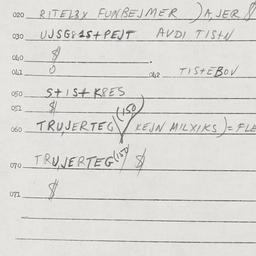 020 RITELBY FUNBEJMER ) AJER $
030 UJSG81S+PEJT AVDI TIS+N
040 $
041 0 042 TIS+EBOV
050 S+IS+K8ES
051 $ (150)
060 TRUJERTEG KEJN MILXIKS)=FLE
070 TRUJERTEG (150) $
071 $